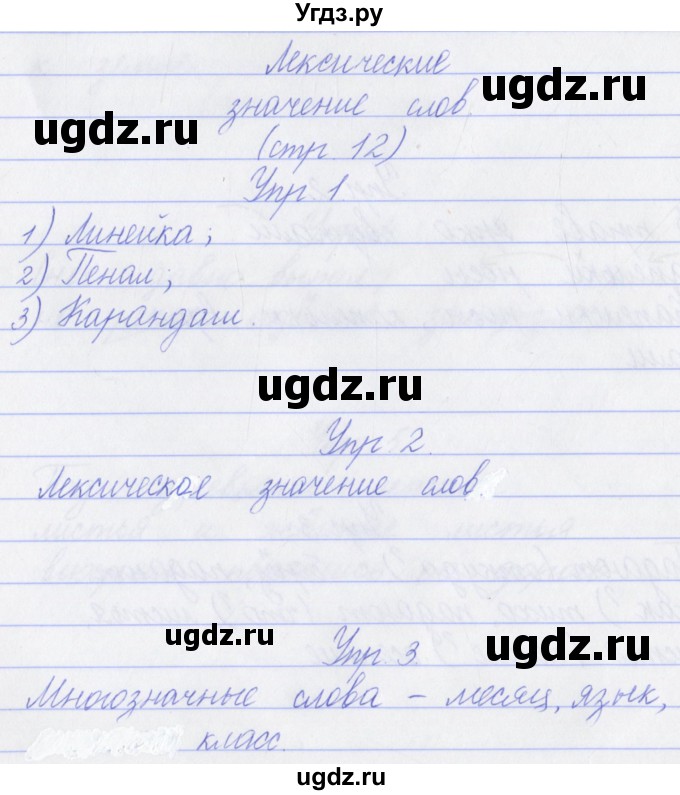 Угдз.ру
Лексические
ugdz.ru
значение слов
ugdz.ru
(стр. 12)
Упр 1
1) Линейка;
2) Пенал;
3) Карандаш.
ugdz.ru
Упр 2.
Лексическое значение слов.
ugdz.ru
Упр 3.
ugdz.ru
Многозначные слова - месяц, язык,
класс.
ugdz.ru